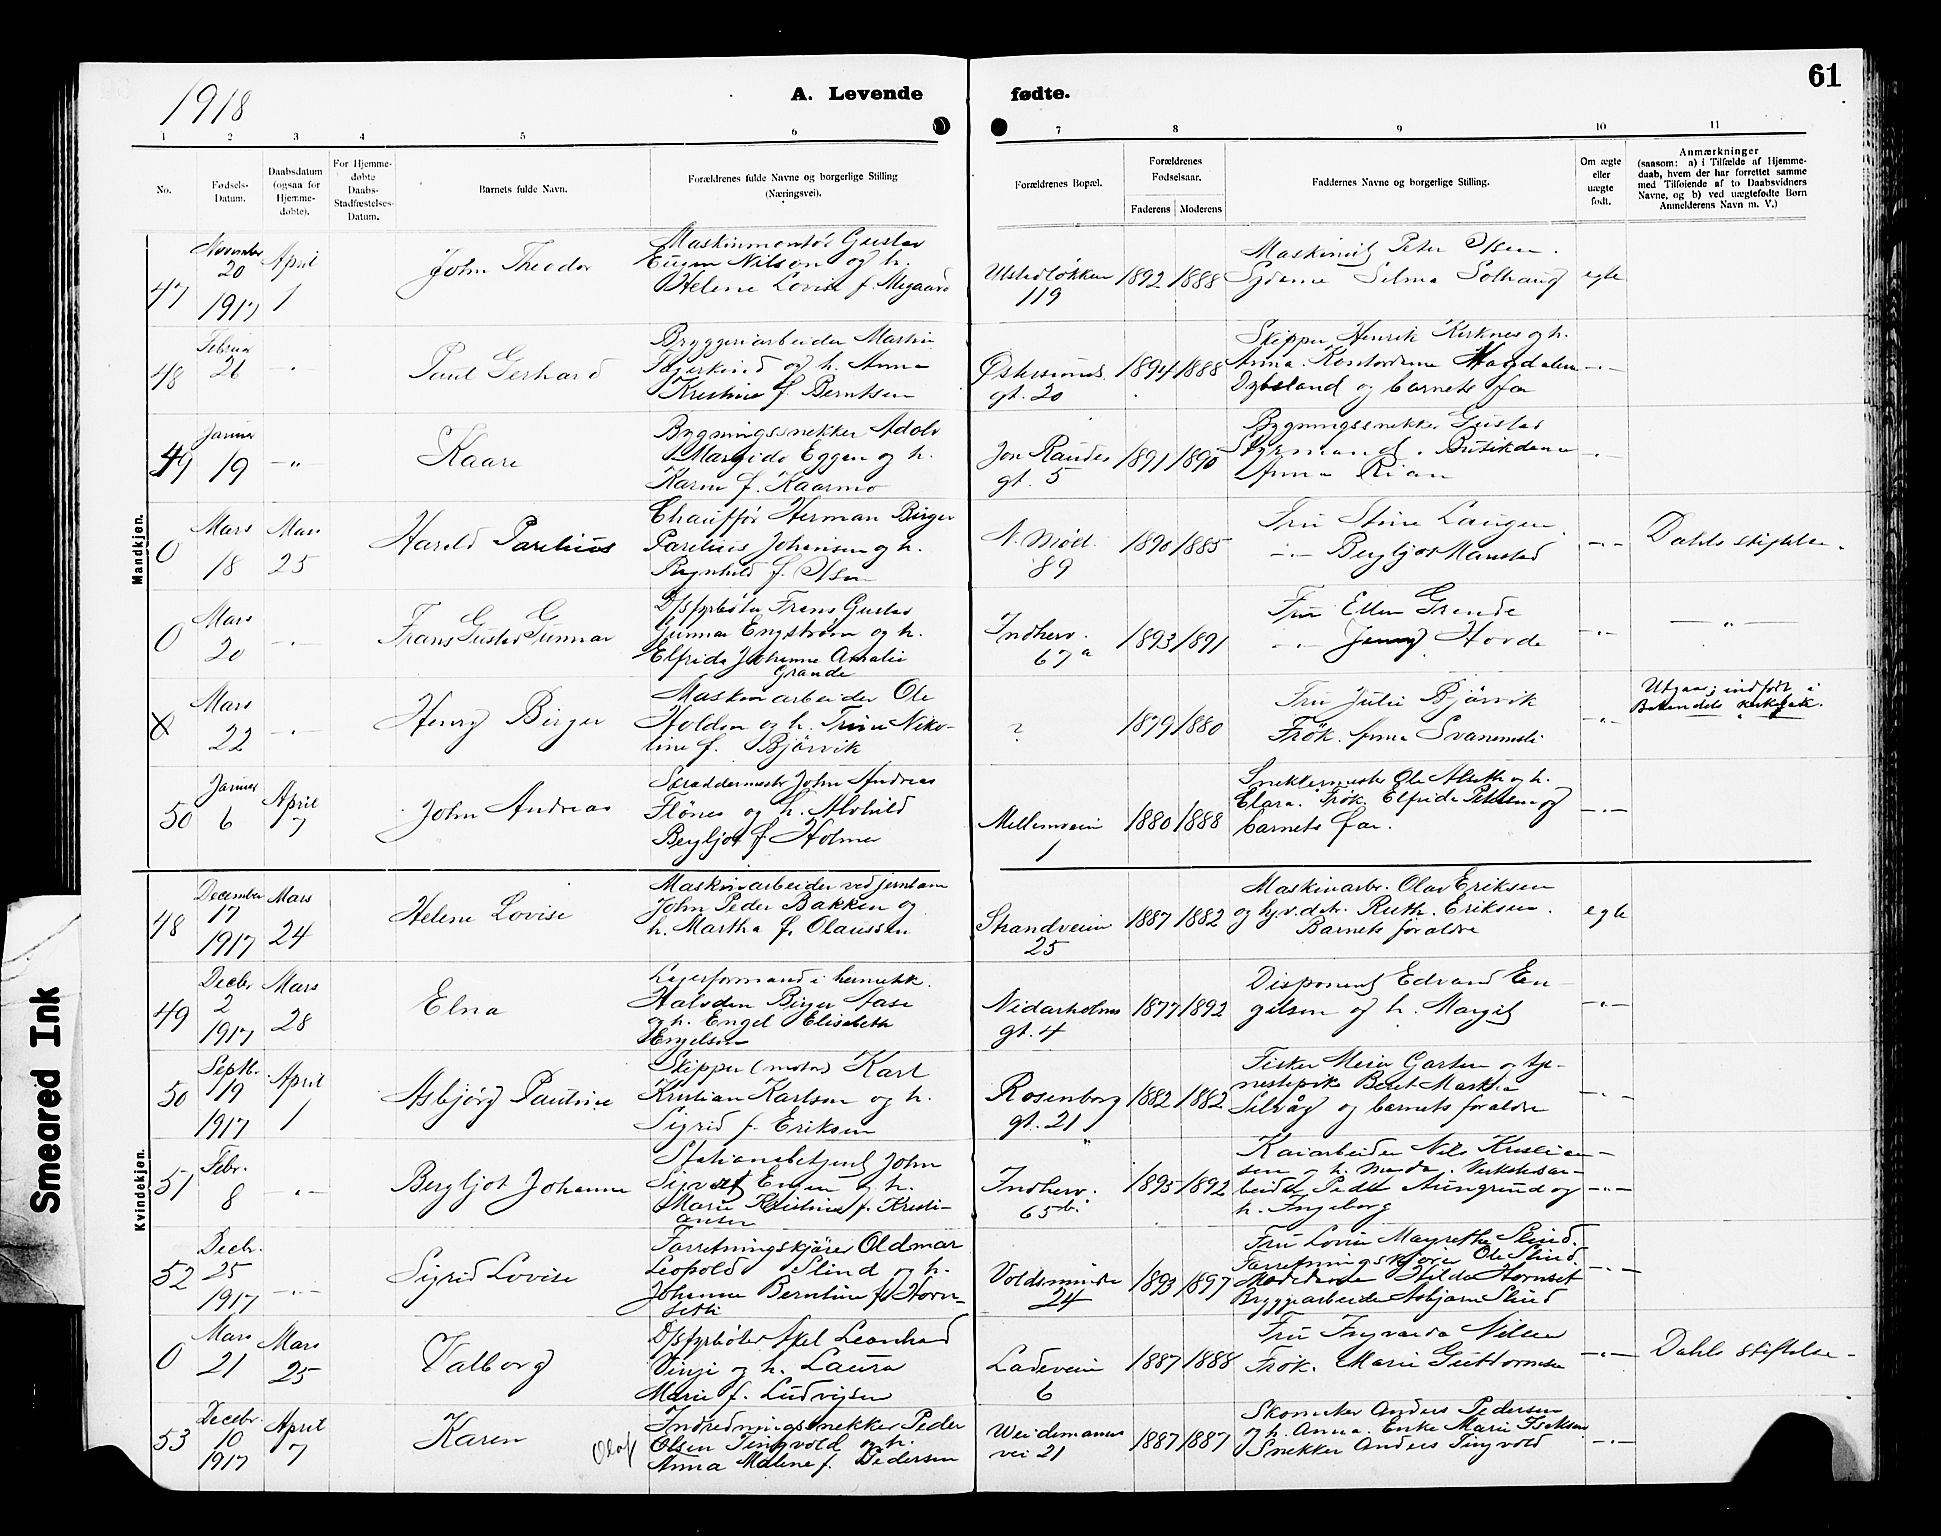 1918
A. Levende fødte.
61
1 2 3 4 5 6 7 8 9 10 11
No.
Fødsels-
Datum.
Daabsdatum
(ogsaa for
Hjemme-
døbte).
For Hjemme-
døbte
Daabs-
Stadfæstelses-
Datum.
Barnets fulde Navn.
Forældrenes fulde Navne og borgerlige Stilling
(Næringsvei).
Forældrenes Bopæl.
Forældrenes
Fødselsaar.
Faderens Moderens
Faddernes Navne og borgerlige Stilling.
Om ægte
eller
uægte
født.
Anmærkninger
(saasom: a) i Tilfælde af Hjemme-
daab, hvem der har forrettet samme
med Tilføiende af to Daabsvidners
Navne, og b) ved uægtefødte Børn
Anmelderens Navn m. V.)
Mandkjøn.
47
November
20
1917
April
1
John Theodor
Maskinmontør Gustav
Eugen Nilson og h.
Helene Lovise f. Megaard
Ustadløkken
119
1892 1888
Peter Olsen.
Syderne Selma Solhaug
egte
48
Februar
21
-"-
Paul Gerhard
Bryggeriarbeider Martin
og h. Anna
Kristine f. Berntsen
Østersunds
gt. 20
1894 1888
Skipper Henrik Kirknes og h.
Anna. Kontordame Magdalene
og barnets far
-"-
49
Januar
19
-"-
Kaare
Bygningssnekker Adolv
Margido Eggen og h.
Karen f. Kaarmo
Jon Raudes
gt. 5
1891 1895
Bygningssnekker Gustav
Styrmand. Butikdame
Anna Rian
-"-
0
Mars
18
Mars
25
Harald Parelius
Chauffør Herman Birger
Parelius Johansen og h.
Ragnhild f. Olsen
N. Møl.
89
1890 1885
Fru Stine Laugen
-"- Bergljot Manstad
-"-
Dahls stiftelse.
0
Mars
20
-"-
Frans Gustav Gunnar
D/sfyrbøter Frans Gustav
Gunnar Engstrøm og h.
Elfrida Johanne Amalie
Grande
Indherv.
67 a
1893 1891
Fru Ellen Grande
-"- Jenny Hovde
-"-
-"-
0
Mars
22
-"-
Henry Birger
Maskinarbeider Ole
Holden og h. Trine Niko-
line f. Bjørvik
?
1879 1880
Fru Julie Bjørvik
Frøk. Anna Svanemsli
-"-
Utgaar; indført i
Bakendets kirkebok.
50
Januar
6
April
7
John Andreas
Skræddermester John Andreas
Flønes og h. Alvhild
Bergljot f. Holmer
Mellemveien
1
1880 1888
Snekkermester Ole Alseth og h.
Clara. Frøk. Elfrida Pettersen og
barnets far.
-"-
Kvindekjøn.
48
December
17
1917
Mars
24
Helene Lovise
Maskinarbeider ved jernbane
John Peder Bakken og
h. Martha f. Olaussen
Strandveien
25
1887 1882
Maskinarb. Olav Eriksen
og hj.v.dtr. Ruth. Eriksen.
Barnets forældre
egte
49
Decbr
2
1917
Mars
28
Elna
Lagerformand i hermetikk.
Halvdan Birger Aase
og h. Engel Elisabeth
Engelsen
Nidarholms
gt. 4
1877 1892
Disponent Edvard En-
gelsen og h. Margit
-"-
50
Septbr.
19
1917
April
1
Asbjørg Pauline
Skipper (motor) Karl
Kristian Karlsen og h.
Sigrid f. Eriksen
Rosenborg
gt. 21
1882 1882
Fisker Meier Garten og tje-
nestepike Beret Martha
Selvåg og barnets forældre
-"-
51
Febr.
8
-"-
Bergljot Johanne
Stationsbetjent John
Sigvart Engen og h.
Marie Kristine f. Kristi-
ansen
Indherv.
65 b.
1895 1892
Kaiarbeider Nils Kristian-
sen og h. Verkstedsar-
beider Peder Aungrund og
h. Ingeborg
-"-
52
Decbr.
25
1917
-"-
Sigrid Lovise
Forretningskjører Oldmar
Leopold Slind og h.
Johanne Berntine f. Horn-
seth
Voldsminde
24
1893 1897
Fru Lovise Margrethe Slind.
Forretningskjører Ole Slind.
Modedame Hilda Hornset
Bryggearbeider Asbjørn Slind
-"-
0
Mars
21
Mars
25
Valborg
D/sfyrbøter Axel Leonhard
Vinje og h. Laura
Marie f. Ludvigsen
Ladeveien
6
1887 1888
Fru Ingvarda Nilsen
Frøk. Marie Guttormsen
-"-
Dahls stiftelse-
53
Decbr.
10
1917
April
7
Karen
Indredningssnekker Peder
Olaf
Olsen Tingvold og h.
Anna Malene f. Pedersen
Weidemanns
vei 21
1887 1887
Skomaker Anders Pedersen
og h. Anna. Enke Marie Isaksen
Snekker Anders Tingvold
-"-
Smeared Ink